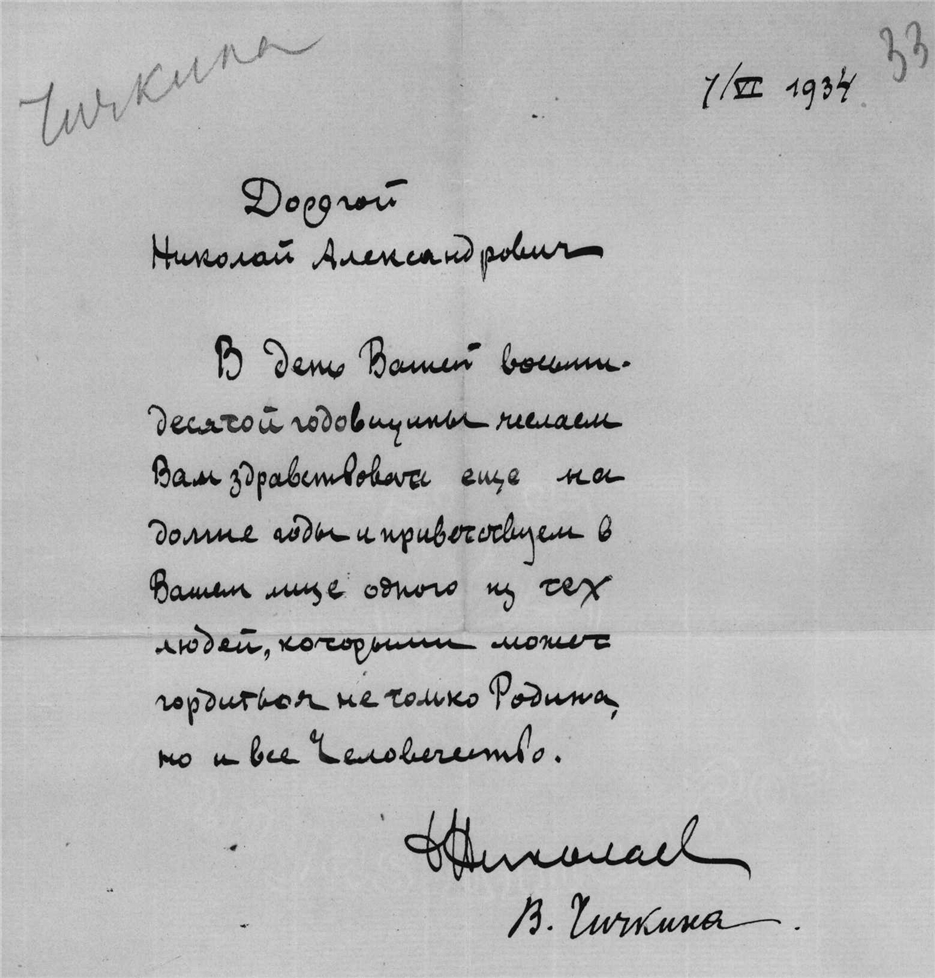 Чичкина
33
7/VI 1934
Дорогой
Николай Александрович
В день Вашей восьми-
десятой годовщины желаем
Вам здравствовать еще на
долгие годы и приветствуем в
Вашем лице одного из тех
людей, которыми может
гордиться не только Родина,
но и все Человечество.
Николаев
В. Чичкина.